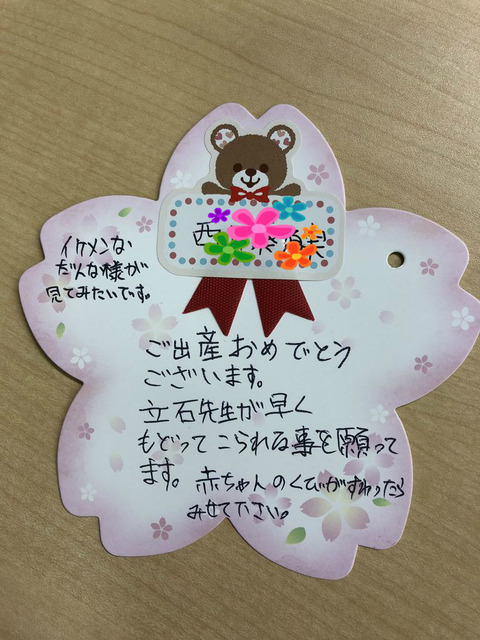 西
イケメンな
だんな様が
見てみたいです。
ご出産おめでとう
ございます。
立石先生が早く
もどってこられる事を願って
ます。赤ちゃんのくびがすわったら
みせて下さい。